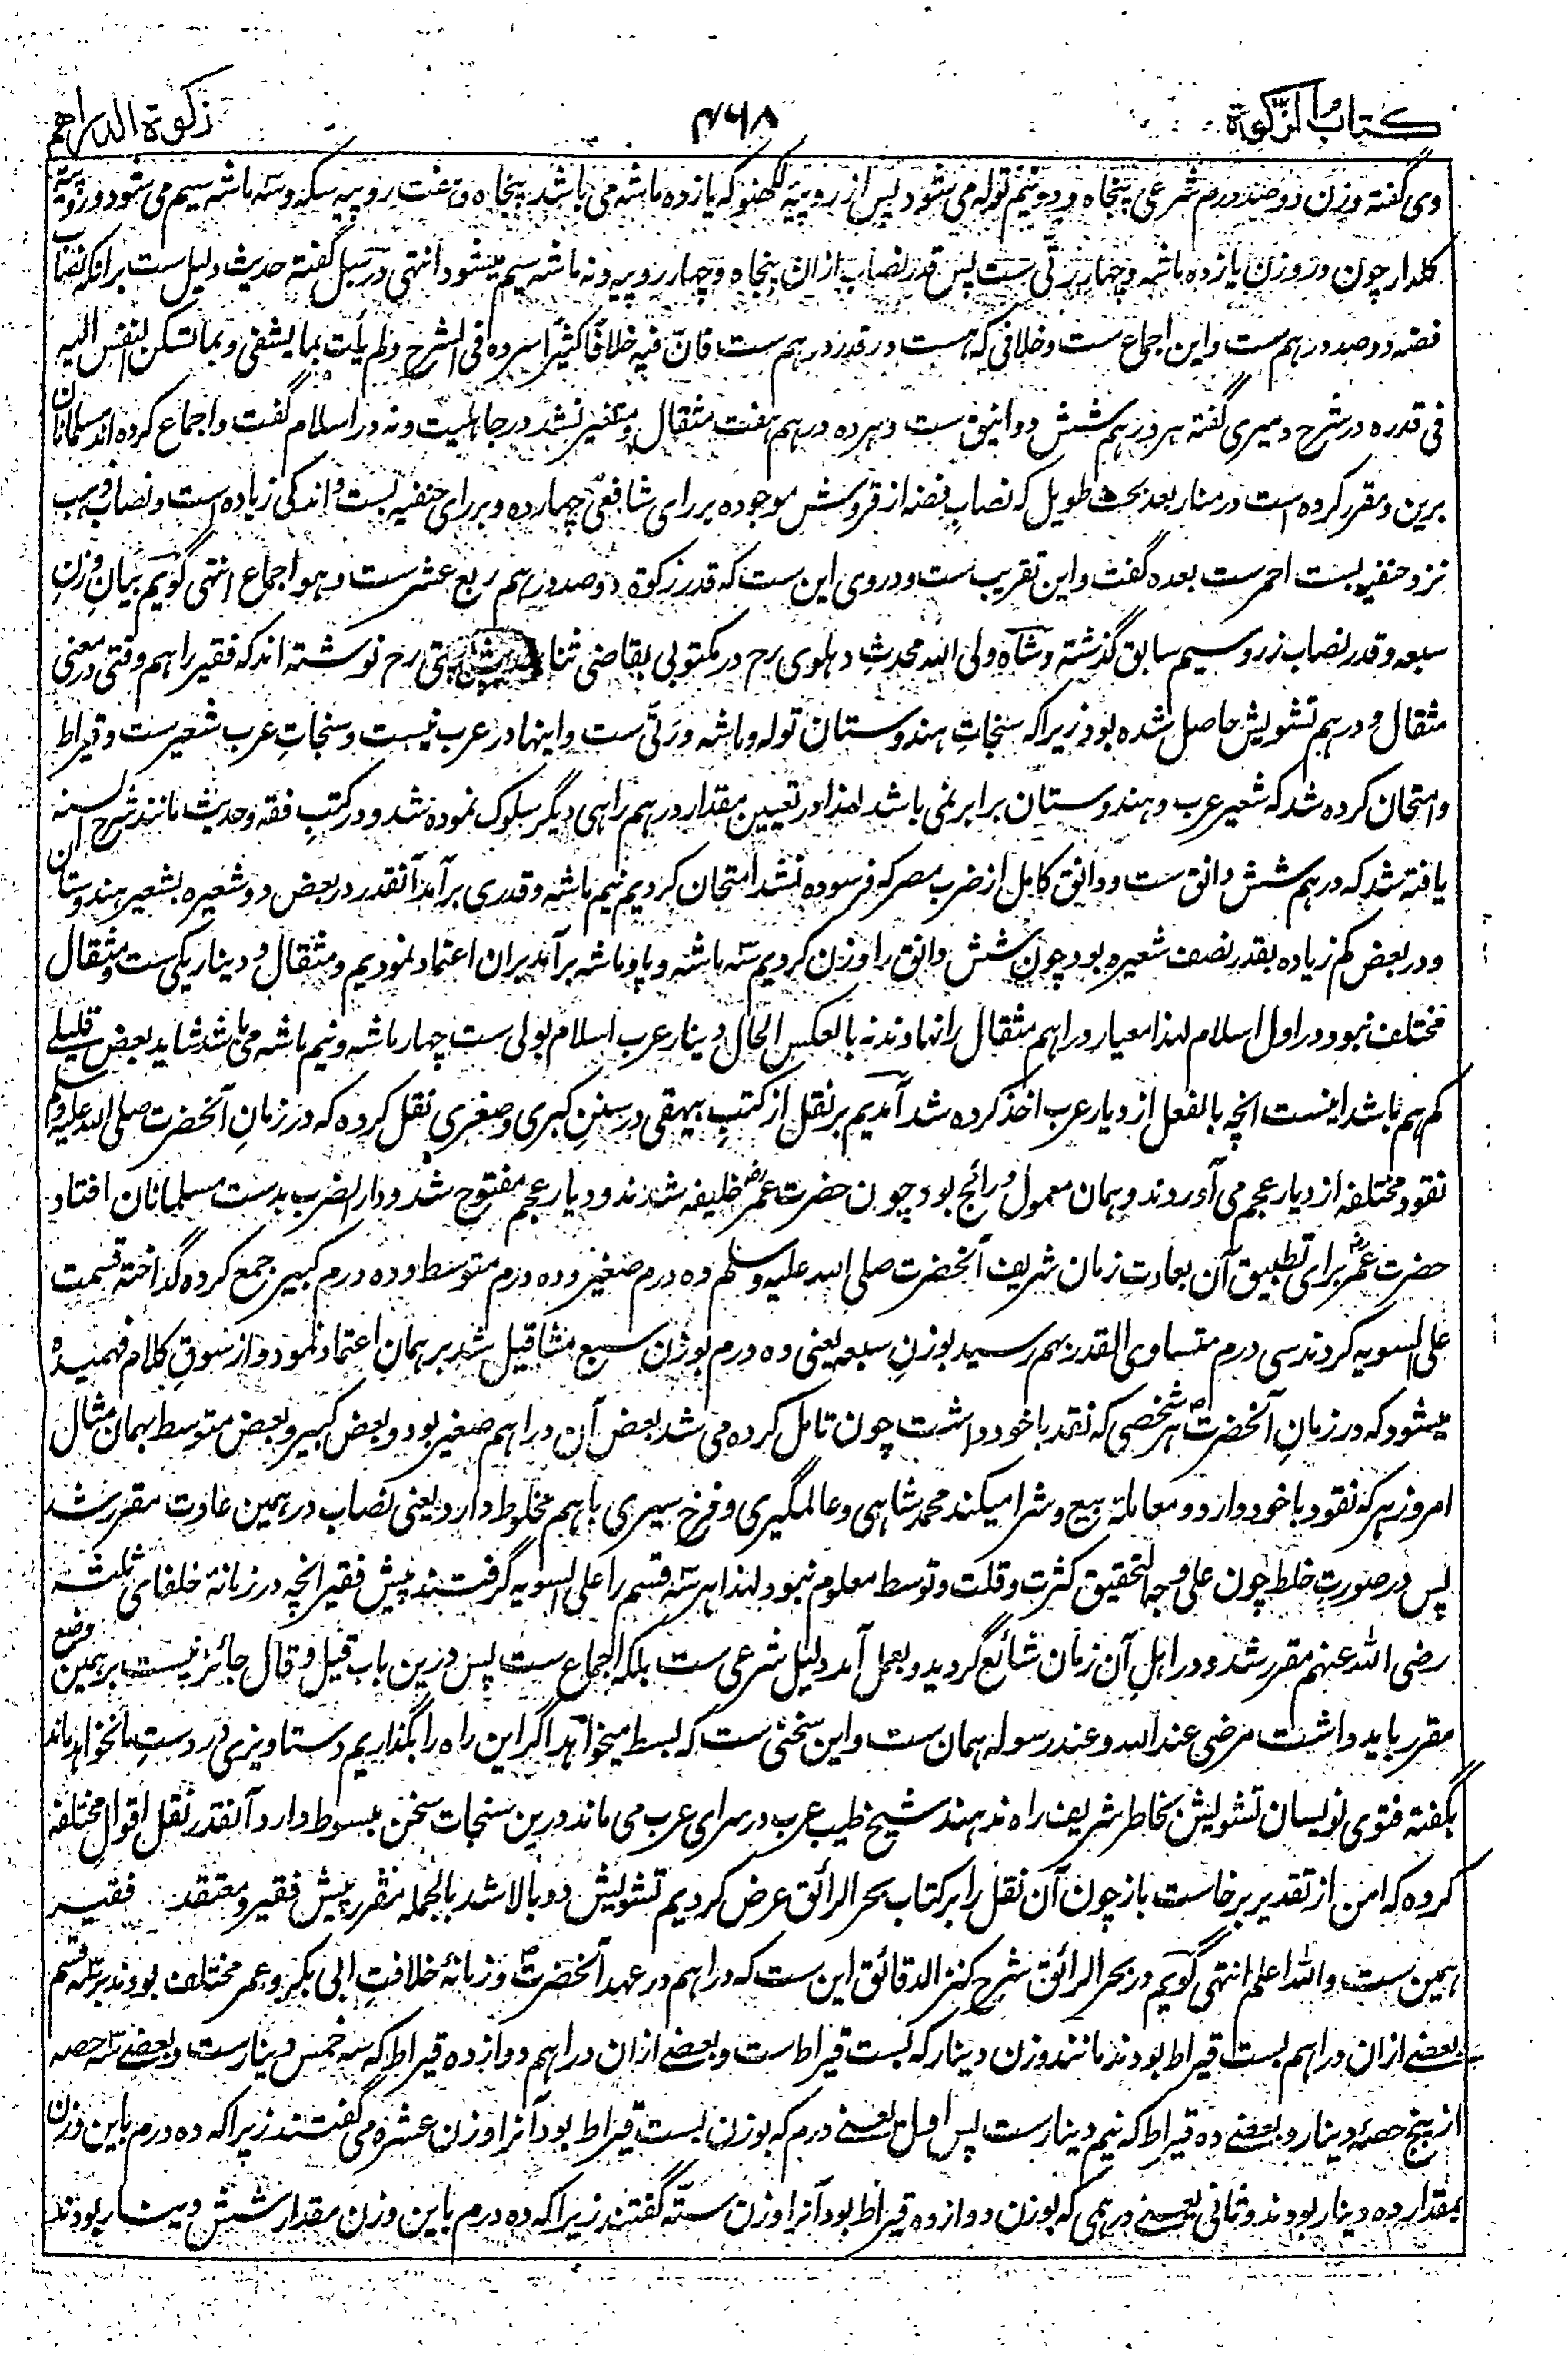 کتاب الزکوة
۴۶۸
زکوة الدراهم
وی گفته وزن دو صد درم شرعی پنجاه و دو نیم توله می شود پس از روپیهٔ لکهنو که یازده ماشه می باشد پنجاه و هفت روپیه سکه و سه ماشه سیم می شود و روپیهٔ
کلدار چون در وزن یازده ماشه و چهار رتی ست پس قدر نصاب ازان پنجاه و چهار روپیه و نه ماشه سیم میشود انتهی در سبل گفته حدیث دلیل ست برانکه نصاب
فضه دو صد درهم ست و این اجماع ست و خلافی که هست در قدر درهم ست فانّ فیه خلافًا کثیرًا سرده فی الشرح ولم یأت بما یشفی و بما تسکن النفس الیه
فی قدره در شرح دمیری گفته هر درهم شش دوانیق ست و هر ده درهم هفت مثقال و متغیر نشد در جاهلیت و نه در اسلام گفت و اجماع کرده اند مسلمانان
برین و مقرر کرده است در منار بعد بحث طویل که نصاب فضه از قروش موجوده بر رای شافعی چهارده و بر رای حنفیه بست و اندکی زیاده است و نصاب ذهب
نزد حنفیه بست احمرست بعده گفت و این تقریب ست و در وی این ست که قدر زکوة دو صد درهم ربع عشرست و هو اجماع انتهی گویم بیان وزن
سبعه و قدر نصاب زر و سیم سابق گذشته و شاه ولی الله محدث دهلوی رح در مکتوبی بقاضی ثناء پتی رح نوشته اند که فقیر را هم وقتی در معنی
مثقال و درهم تشویش حاصل شده بود زیرا که سنجات هندوستان توله و ماشه و رتّی ست و اینها در عرب نیست و سنجاتِ عرب شعیرست و قیراط
و امتحان کرده شد که شعیر عرب و هندوستان برابر نمی باشد لهذا در تعیین مقدار درهم راهی دیگر سلوک نموده شد و در کتبِ فقه و حدیث مانند شرح السنه
یافته شد که درهم شش دانق ست و دانق کامل از ضرب مصر که فرسوده نشد امتحان کردیم نیم ماشه و قدری برآمد آنقدر در بعض دو شعیره بشعیر هندوستان
و در بعض کم زیاده بقدر نصف شعیره بود چون شش دانق را وزن کردیم سه ماشه و پاو ماشه برآمد بران اعتماد نمودیم و مثقال و دینار یکی ست و مثقال
مختلف نبود در اول اسلام لهذا معیار دراهم مثقال را نهادند نه بالعکس الحال دینار عرب اسلام بولی ست چهار ماشه و نیم ماشه می باشد شاید بعض قلیلی
کم هم باشد اینست انچه بالفعل از دیار عرب اخذ کرده شد آمدیم بر نقل از کتب بیهقی در سننِ کبری و صغری نقل کرده که در زمانِ آنحضرت صلی الله علیه وسلم
نقود مختلفه از دیار عجم می آوردند و همان معمول و رائج بود چون حضرت عمرؓ خلیفه شدند و دیار عجم مفتوح شد و دار الضرب بدست مسلمانان افتاد
حضرت عمرؓ برای تطبیق آن بعادت زمان شریف آنحضرت صلی الله علیه وسلم ده درم صغیر و ده درم متوسط و ده درم کبیر جمع کرده گداخته قسمت
علی السویه کردند سی درم متساوی القدر بهم رسید بوزنِ سبعه یعنی ده درم بوزن سبع مثاقیل شد بر همان اعتماد نمود و از سوقِ کلام فهمیده
میشود که در زمانِ آنحضرت هر شخصی که نقد با خود داشت چون تامل کرده می شد بعض آن دراهم صغیر بود و بعض کبیر و بعض متوسط بهمان مثال
امروز هر که نقود با خود دارد و معاملهٔ بیع و شرا میکند محمد شاهی و عالمگیری و فرخ سیری با هم مخلوط دارد یعنی نصاب در همین عادت مقرر شد
پس در صورتِ خلط چون علی وجه التحقیق کثرت و قلت و توسط معلوم نبود لهذا هر سه قسم را علی السویه گرفتند پیش فقیر انچه در زمانهٔ خلفای ثلثه
رضی الله عنهم مقرر شد و در اهلِ آن زمان شائع گردید و بعمل آمد دلیل شرعی ست بلکه اجماع ست پس درین باب قیل و قال جائز نیست بر همین وضع
مقرر باید داشت مرضی عند الله و عند رسوله همان ست و این سخنی ست که بسط میخواهد اگر این راه را بگذاریم دستاویزی در دست ما نخواهد ماند
بگفته فتوی نویسان تشویش بخاطر شریف راه ندهند شیخ طیب عرب در سرای عرب می ماند درین سنجات سخن مبسوط دارد آنقدر نقل اقوال مختلفه
کرده که امن از تقدیر برخاست باز چون آن نقل را بر کتاب بحر الرائق عرض کردیم تشویش دو بالا شد بالجمله مقرر پیش فقیر و معتقد فقیر
همین ست والله اعلم انتهی گویم در بحر الرائق شرح کنز الدقائق این ست که دراهم در عهد آنحضرت و زمانهٔ خلافتِ ابی بکر و عمر مختلف بودند بر سه قسم
بعضے ازان دراهم بست قیراط بودند مانند وزن دینار که بست قیراط ست و بعضے ازان دراهم دوازده قیراط که سه خمس دینارست و بعضے سه حصه
از پنج حصهٔ دینار و بعضے ده قیراط که نیم دینارست پس اول یعنے درم که بوزن بست قیراط بود آنرا وزن عشره می گفتند زیرا که ده درم باین وزن
بمقدار ده دینار بودند و ثانی یعنے درهمی که بوزن دوازده قیراط بود آنرا وزن ستّه گفتند زیرا که ده درم باین وزن مقدار شش دینار بودند